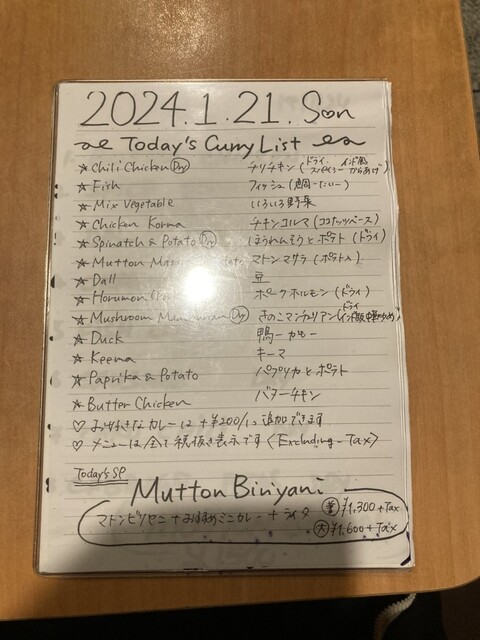 2024.1.21.Sun
Today's Curry List
☆ Chili Chicken Dry チリチキン (ドライ スパイシー インド風 からあげ)
☆ Fish フィッシュ (鯛-たい-)
☆ Mix Vegetable いろいろ野菜
☆ Chicken Korma チキンコルマ (ココナッツベース)
☆ Spinatch & Potato Dry ほうれんそうとポテト (ドライ)
☆ Mutton マトンマサラ (ポテト入)
☆ Dall 豆
☆ Horumon ポークホルモン (ドライ)
☆ Mushroom Dry きのこマンチュリアン (ドライ インド風中華炒め)
☆ Duck 鴨-かも-
☆ Keema キーマ
☆ Paprika & Potato パプリカとポテト
☆ Butter Chicken バターチキン
♡ お好きなカレーは +¥200/1つ 追加できます
♡ メニューは全て税抜き表示です〈Excluding-Tax〉
Today's SP
Mutton Biriyani
マトンビリヤニ+おすすめミニカレー+ライタ
¥1,300+Tax
大 ¥1,600+Tax